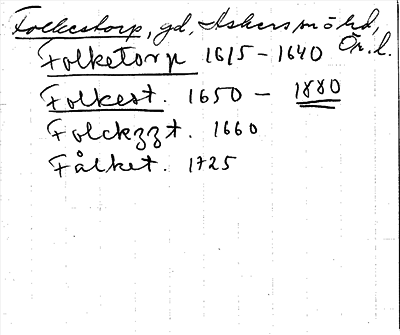 Folkestorp, gd, Askers s:n ö hd,
Ör. l.
Folketorp 1615 - 1640
Folkest. 1650 - 1880
Folckzzt. 1660
Fålket. 1725